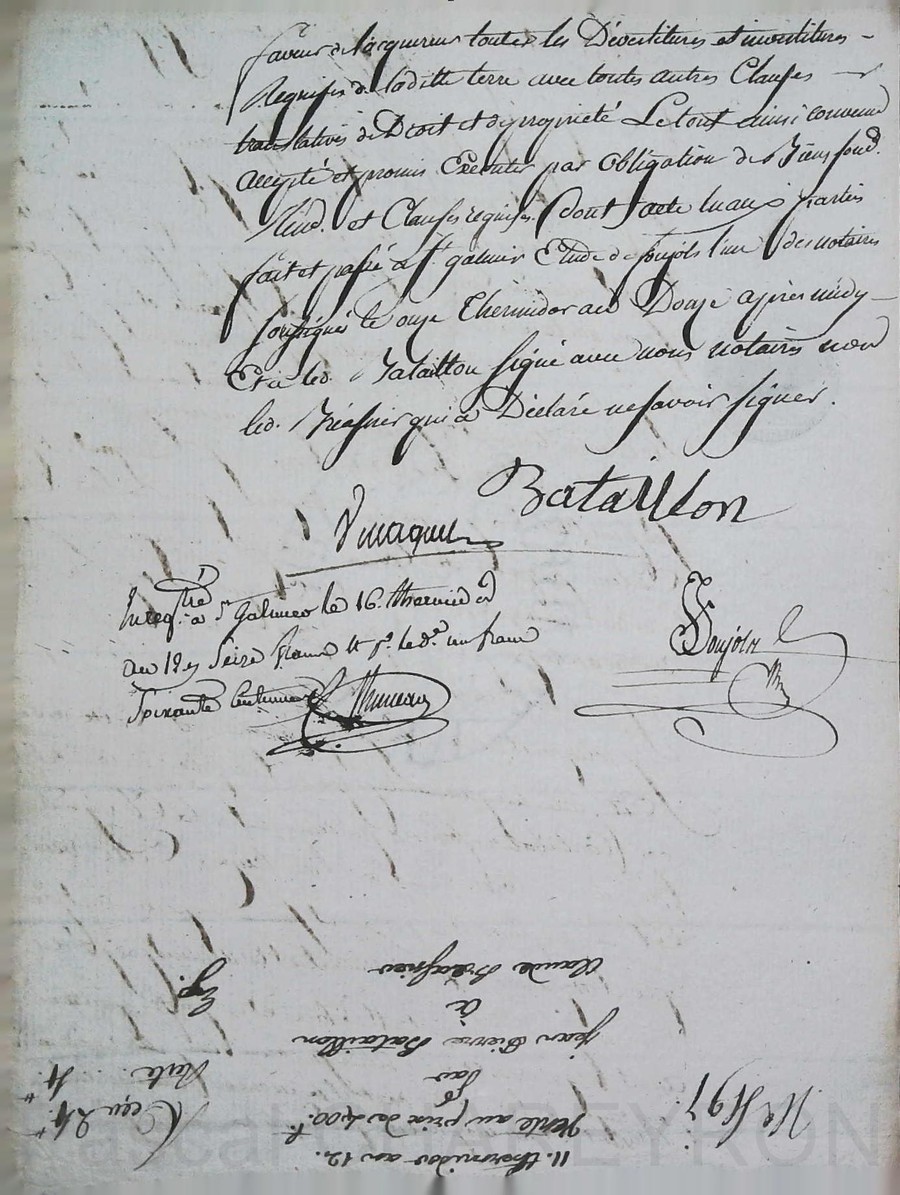 faveur de lacquereur toutes les Dévestitures et investitures -
Requises de laditte terre avec toutes autres Clauses
translatives de Droit et de propriété Le tout ainsi convenu
accepté et promis Exécuter par obligation de Biens fond.
et Clauses requises. Dont acte luaux parties
fait et passé à St galmier Etude de Soujols l'un des notaires
soussignés le onze Thermidor an Douze apres midy -
Et a led. Bataillon signé avec nous notaires non
led. qui a Déclaré ne savoir signer.
Bataillon
Soujols
Enregtré à St Galmier le 16. thermidor
an 12. Seize franc
Soixante Centimes
11. thermidor an 12.
Vente au prix de 400.f
par
jean Pierre Bataillon
à
Claude
Reçu 24.tt
Reste 4.tt
Exp.
Pascal CHAMBEYRON